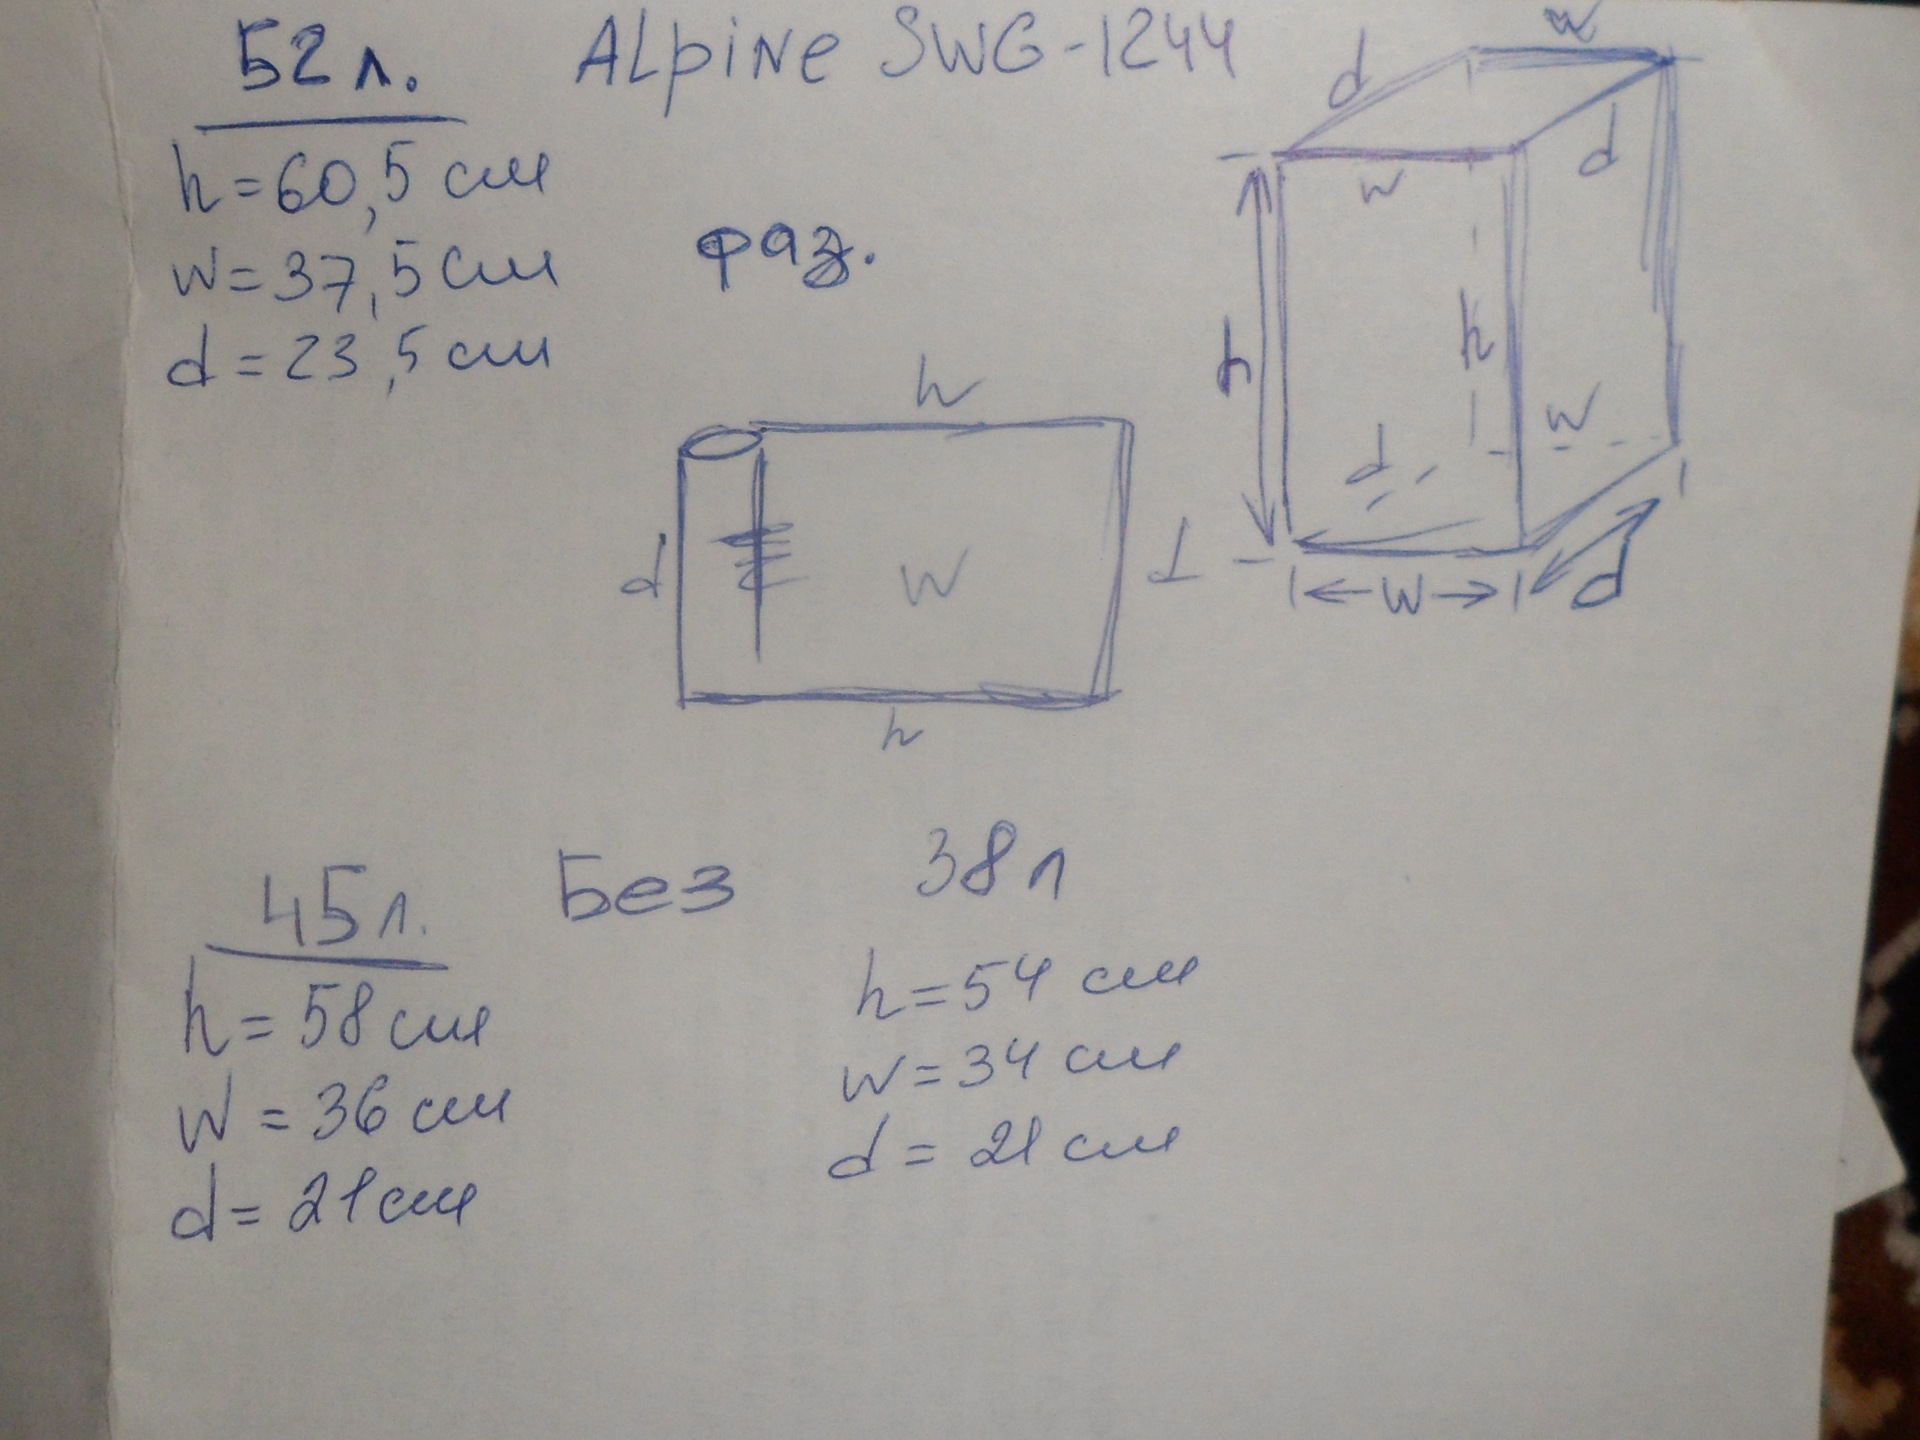 52 л.
Alpine SWG-1244
h=60,5 см
w=37,5 см
d=23,5 см
фаз.
w
d
d
w
h
h
w
d
w
d
h
d
w
d
h
45 л.
Без
38 л
h=58 см
w=36 см
d=21 см
h=54 см
w=34 см
d=21 см